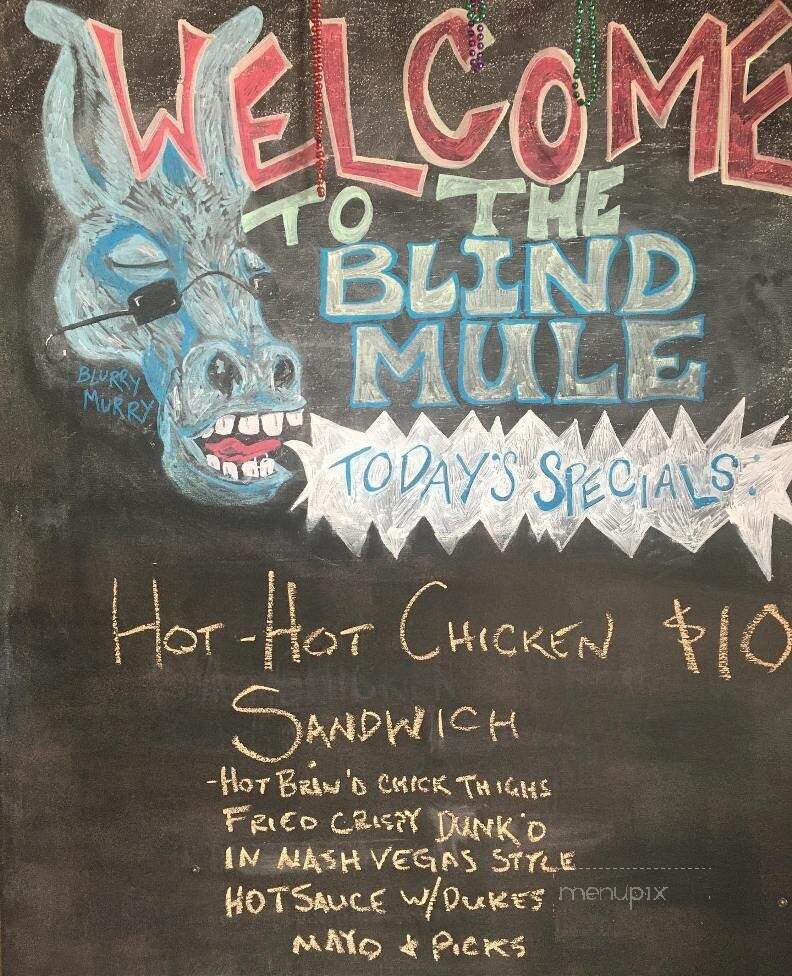 WELCOME
TO THE
BLIND
MULE
BLURRY
MURRY
TODAY'S SPECIALS:
HOT-HOT CHICKEN $10
SANDWICH
-HOT BRIN'D CHICK THIGHS
FRIED CRISPY DUNK'D
IN NASH VEGAS STYLE
HOT SAUCE W/DUKES
MAYO & PICKS
menupix